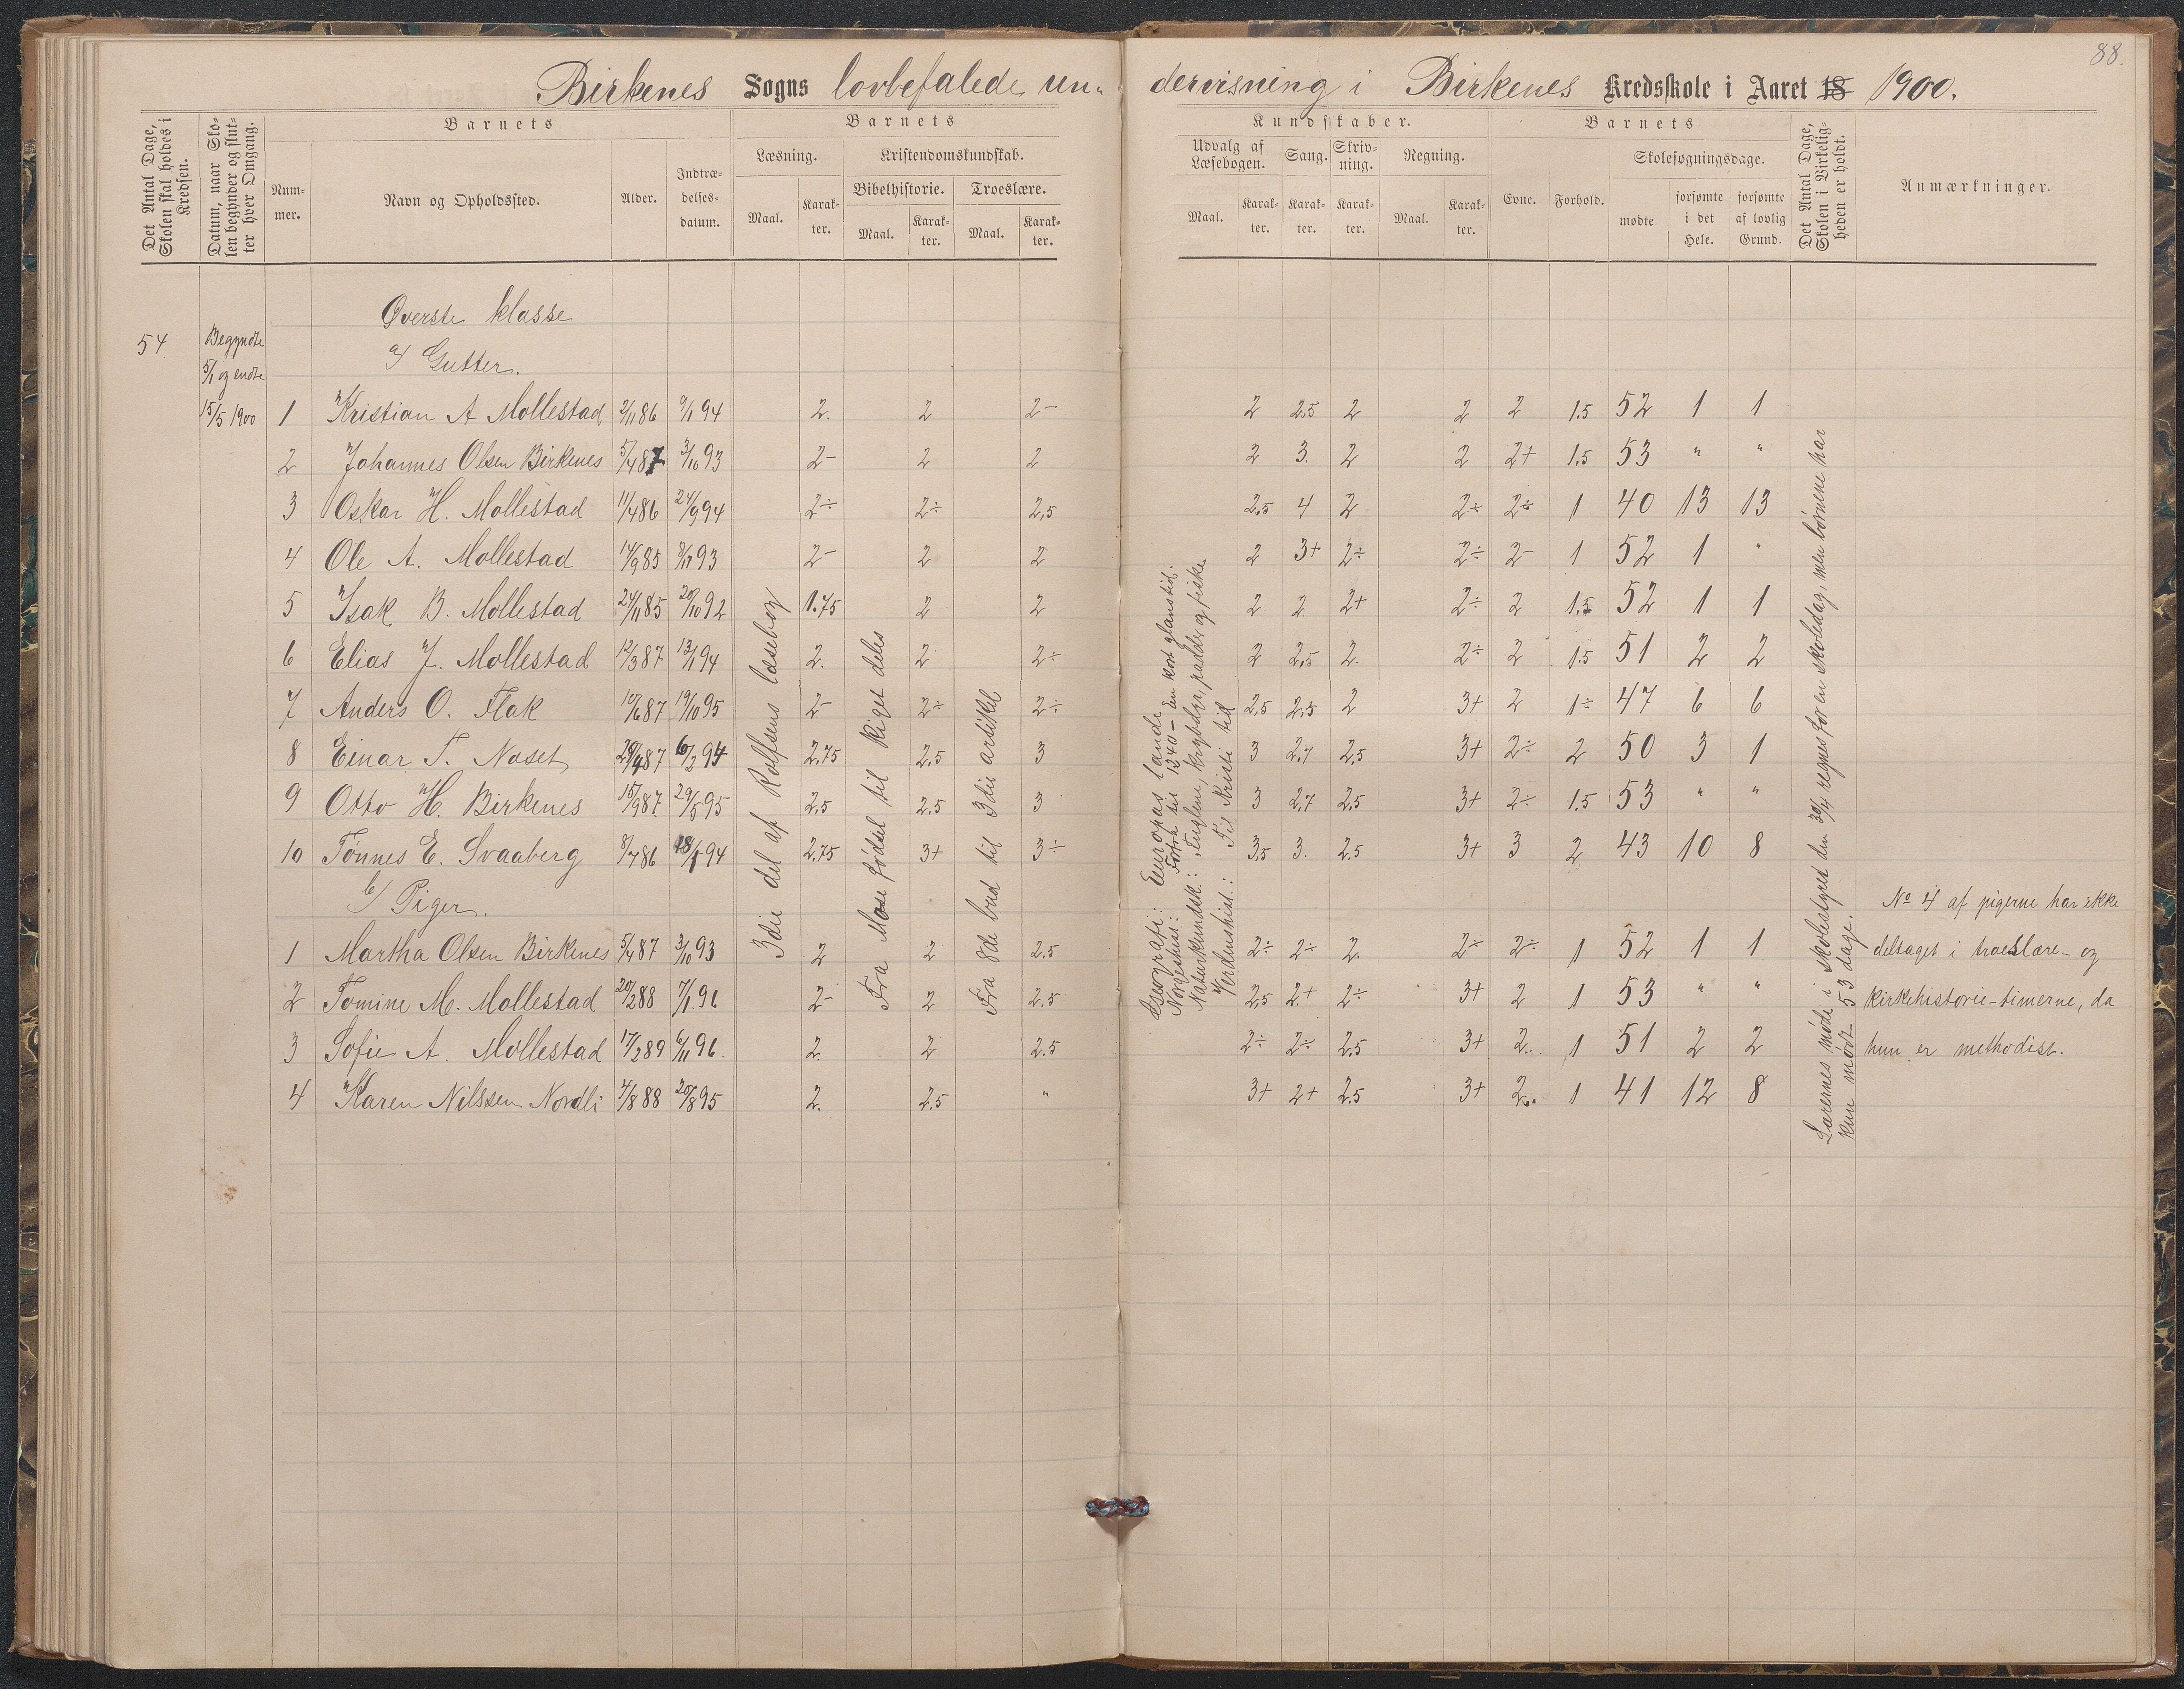 88.
Birkenes Sogns lovbefalede un-dervisning i Birkenes Kredsskole i Aaret 18 1900.
Det Antal Dage, Skolen skal holdes i Kredsen.
Datum, naar Skolen begynder og slutter hver Omgang.
Barnets
Num-mer.
Navn og Opholdssted.
Alder.
Indtræ-delses-datum.
Barnets
Læsning.
Maal.
Karak-ter.
Kristendomskundskab.
Bibelhistorie.
Maal.
Karak-ter.
Troeslære.
Maal.
Karak-ter.
Kundskaber.
Udvalg af Læsebogen.
Maal.
Karak-ter.
Sang.
Karak-ter.
Skriv-ning.
Karak-ter.
Regning.
Maal.
Karak-ter.
Barnets
Evne.
Forhold.
Skolesøgningsdage.
mødte
forsømte i det Hele.
forsømte af lovlig Grund.
Det Antal Dage, Skolen i Virkelig-heden er holdt.
Anmærkninger.
Øverste klasse
54
Begyndte
a/ Gutter.
5/1 og endte
15/5 1900
1 Kristian A Mollestad 2/11 86 9/1 94 2. 2 2- 2 2.5 2 2 2 1.5 52 1 1
2 Johannes Olsen Birkenes 5/4 87 3/10 93 2- 2 2 2 3. 2 2 2+ 1.5 53 " "
3 Oskar H. Mollestad 11/4 86 24/9 94 2÷ 2÷ 2,5 2,5 4 2 2÷ 2÷ 1 40 13 13
4 Ole A. Mollestad 14/9 85 8/11 93 2- 2 2 2 3+ 2÷ 2÷ 2- 1 52 1 "
5 Isak B. Mollestad 24/11 85 20/10 92 1.75 2 2 2 2 2+ 2÷ 2 1.5 52 1 1
6 Elias J. Mollestad 12/3 87 13/1 94 2. 2 2÷ 2 2,5 2. 2÷ 2 1.5 51 2 2
7 Anders O. Flak 10/6 87 19/10 95 2- 2÷ 2÷ 2,5 2,5 2 3+ 2 1÷ 47 6 6
8 Einar T. Naset 29/4 87 6/2 94 2,75 2.5 3 3 2.7 2,5 3+ 2÷ 2 50 3 1
9 Otto H. Birkenes 15/9 87. 29/5 95 2,5 2.5 3 3 2.7 2.5 3+ 2÷ 1.5 53 " "
10 Tønnes E. Svaaberg 8/7 86 18/1 94 2,75 3+ 3÷ 3,5 3. 2.5 3+ 3 2 43 10 8
b/ Piger.
1 Martha Olsen Birkenes 5/4 87 3/10 93 2 2 2.5 2÷ 2÷ 2. 2÷ 2÷ 1 52 1 1
2 Tomine M. Mollestad 20/2 88 7/1 96 2- 2 2.5 2,5 2+ 2÷ 3+ 2 1 53 " "
3 Sofie A. Mollestad 17/2 89 6/11 96. 2. 2 2.5 2÷ 2÷ 2.5 3+ 2. 1 51 2 2
4 Karen Nilssen Nordli 4/8 88 20/8 95 2. 2.5 " 3+ 2+ 2.5 3+ 2. 1 41 12 8
3die del af Rolfsens læsebog
Fra Mose fødsel til Riget deles
Fra 8de bud til 3die artikkel
Geografi: Europas lande
Norgeshist: Forts. til 1340 - En kort glanstid.
Naturkundsk.: Fuglene, krybdyr, padder og fiske
Verdenshist.: Til Kristi tid
Lærernes møde i skolestyret den 30/4 regnes for en skoledag, men børnene har
kun mødt 53 dage.
No 4 af pigerne har ikke
deltaget i troeslære- og
kirkehistorie-timerne, da
hun er methodist.